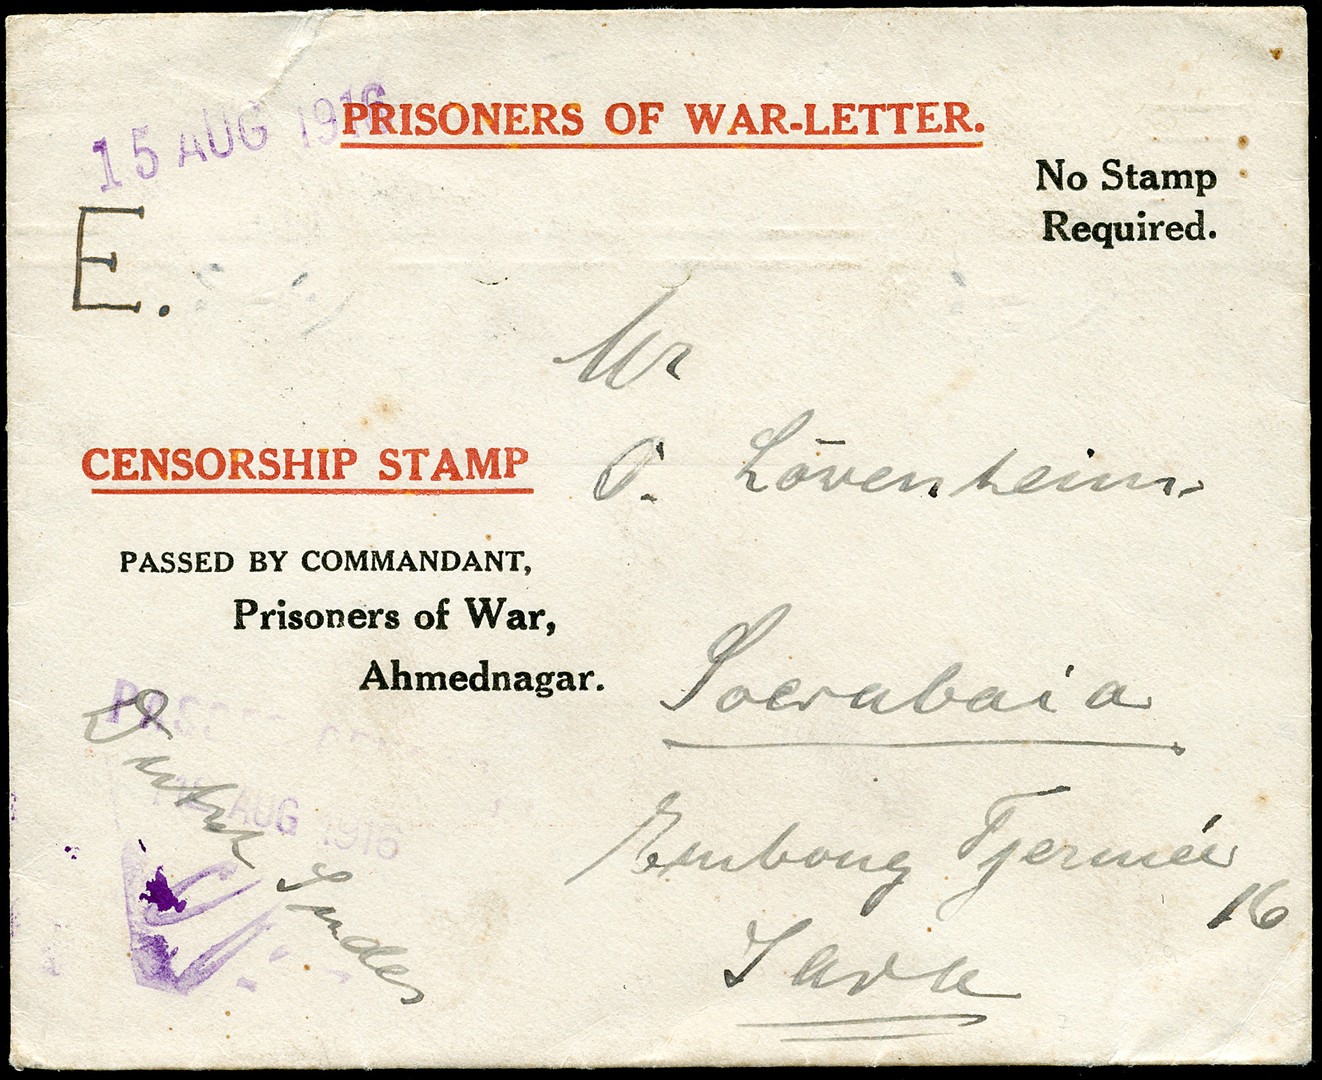 15 AUG 1916
PRISONERS OF WAR-LETTER.
No Stamp
Required.
E.
Mr
O. Lövenheim
CENSORSHIP STAMP
PASSED BY COMMANDANT,
Prisoners of War,
Ahmednagar.
Soerabaia
PASSED
AUG 1916
Dutch Indies
Embong Tjermée
16
Java